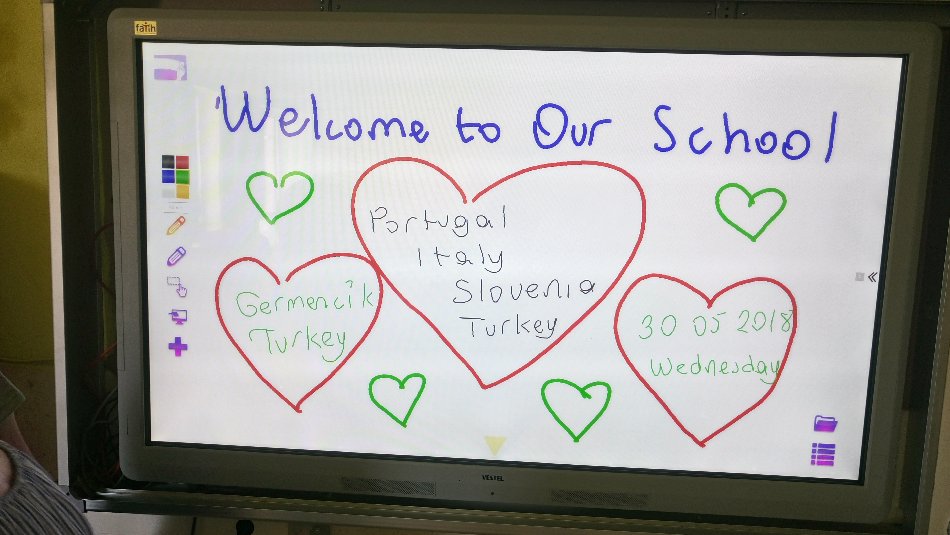 fatih
Welcome to Our School
Portugal
Italy
Slovenia
Turkey
Germencik
Turkey
30 05 2018
Wednesday
VESTEL